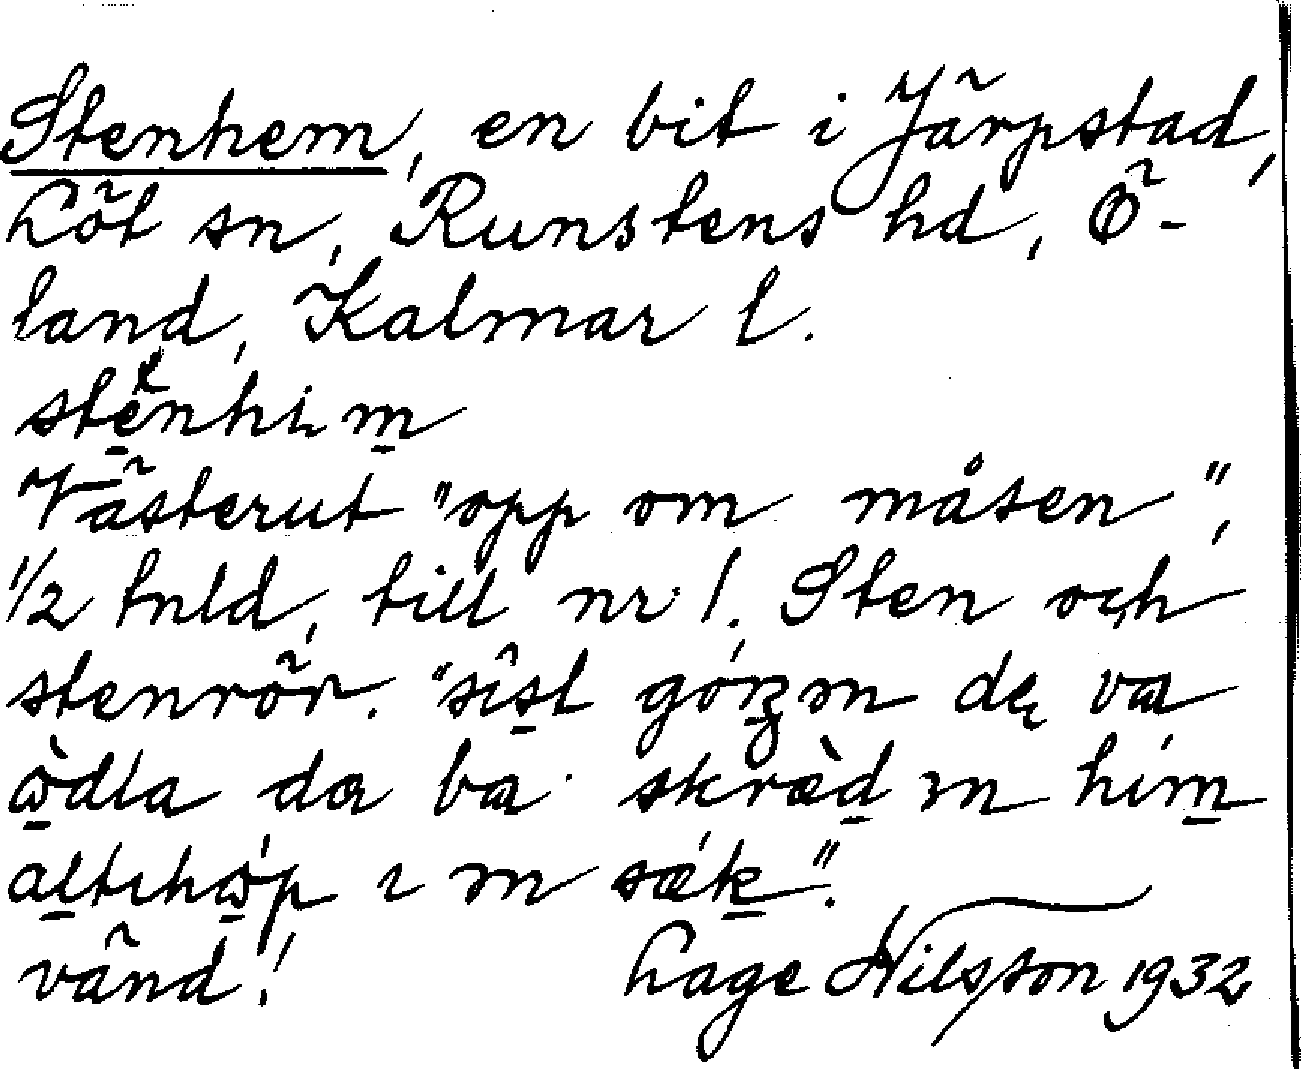 Stenhem, en bit i Järpstad,
Löt sn, Runstens hd, Ö-
land, Kalmar l.
stenhim
Västerut "opp om måsen",
1/2 tnld, till nr 1. Sten och
stenrör. "sîst górʒm dę va
ɷ̀dla dɑ bɑ skræ̀d m hím
altıhɷ́p ı m sǽk".
vänd!
Lage Nilsson 1932